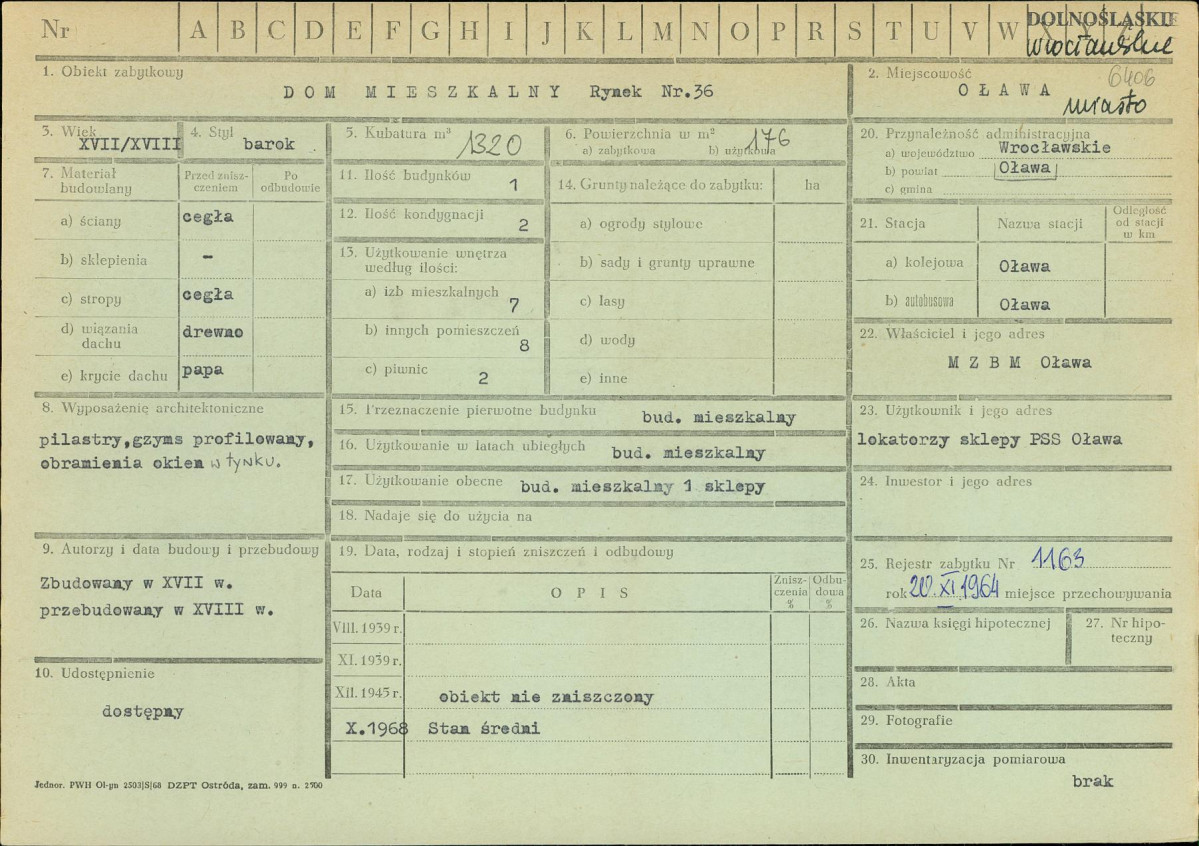 Nr A B C D E F G H I J K L M N O P R S T U V W
DOLNOŚLĄSKIE
wrocławskie
1. Obiekt zabytkowy
DOM MIESZKALNY Rynek Nr.36
2. Miejscowość
6406
OŁAWA
miasto
3. Wiek
XVII/XVIII
4. Styl
barok
5. Kubatura m³
1320
6. Powierzchnia w m²
a) zabytkowa b) użytkowa
176
7. Materiał budowlany
Przed zniszczeniem
Po odbudowie
a) ściany cegła
b) sklepienia –
c) stropy cegła
d) wiązania dachu drewno
e) krycie dachu papa
8. Wyposażenie architektoniczne
pilastry,gzyms profilowany,
obramienia okien w tynku.
9. Autorzy i data budowy i przebudowy
Zbudowany w XVII w.
przebudowany w XVIII w.
10. Udostępnienie
dostępny
11. Ilość budynków
1
12. Ilość kondygnacji
2
13. Użytkowanie wnętrza
według ilości:
a) izb mieszkalnych
7
b) innych pomieszczeń
8
c) piwnic
2
14. Grunty należące do zabytku: ha
a) ogrody stylowe
b) sady i grunty uprawne
c) lasy
d) wody
e) inne
15. Przeznaczenie pierwotne budynku bud. mieszkalny
16. Użytkowanie w latach ubiegłych bud. mieszkalny
17. Użytkowanie obecne bud. mieszkalny 1 sklepy
18. Nadaje się do użycia na
19. Data, rodzaj i stopień zniszczeń i odbudowy
Data OPIS Zniszczenia % Odbudowa %
VIII.1939 r.
XI.1939 r.
XII.1945 r. obiekt nie zniszczony
X.1968 Stan średni
20. Przynależność administracyjna
a) województwo Wrocławskie
b) powiat Oława
c) gmina
21. Stacja Nazwa stacji Odległość od stacji w km
a) kolejowa Oława
b) autobusowa Oława
22. Właściciel i jego adres
MZBM Oława
23. Użytkownik i jego adres
lokatorzy sklepy PSS Oława
24. Inwestor i jego adres
25. Rejestr zabytku Nr 1163
rok 20.XI.1964 miejsce przechowywania
26. Nazwa księgi hipotecznej
27. Nr hipoteczny
28. Akta
29. Fotografie
30. Inwentaryzacja pomiarowa
brak
Jednor. PWH Ol-yn 2503|S|68 DZPT Ostróda, zam. 999 n. 2500